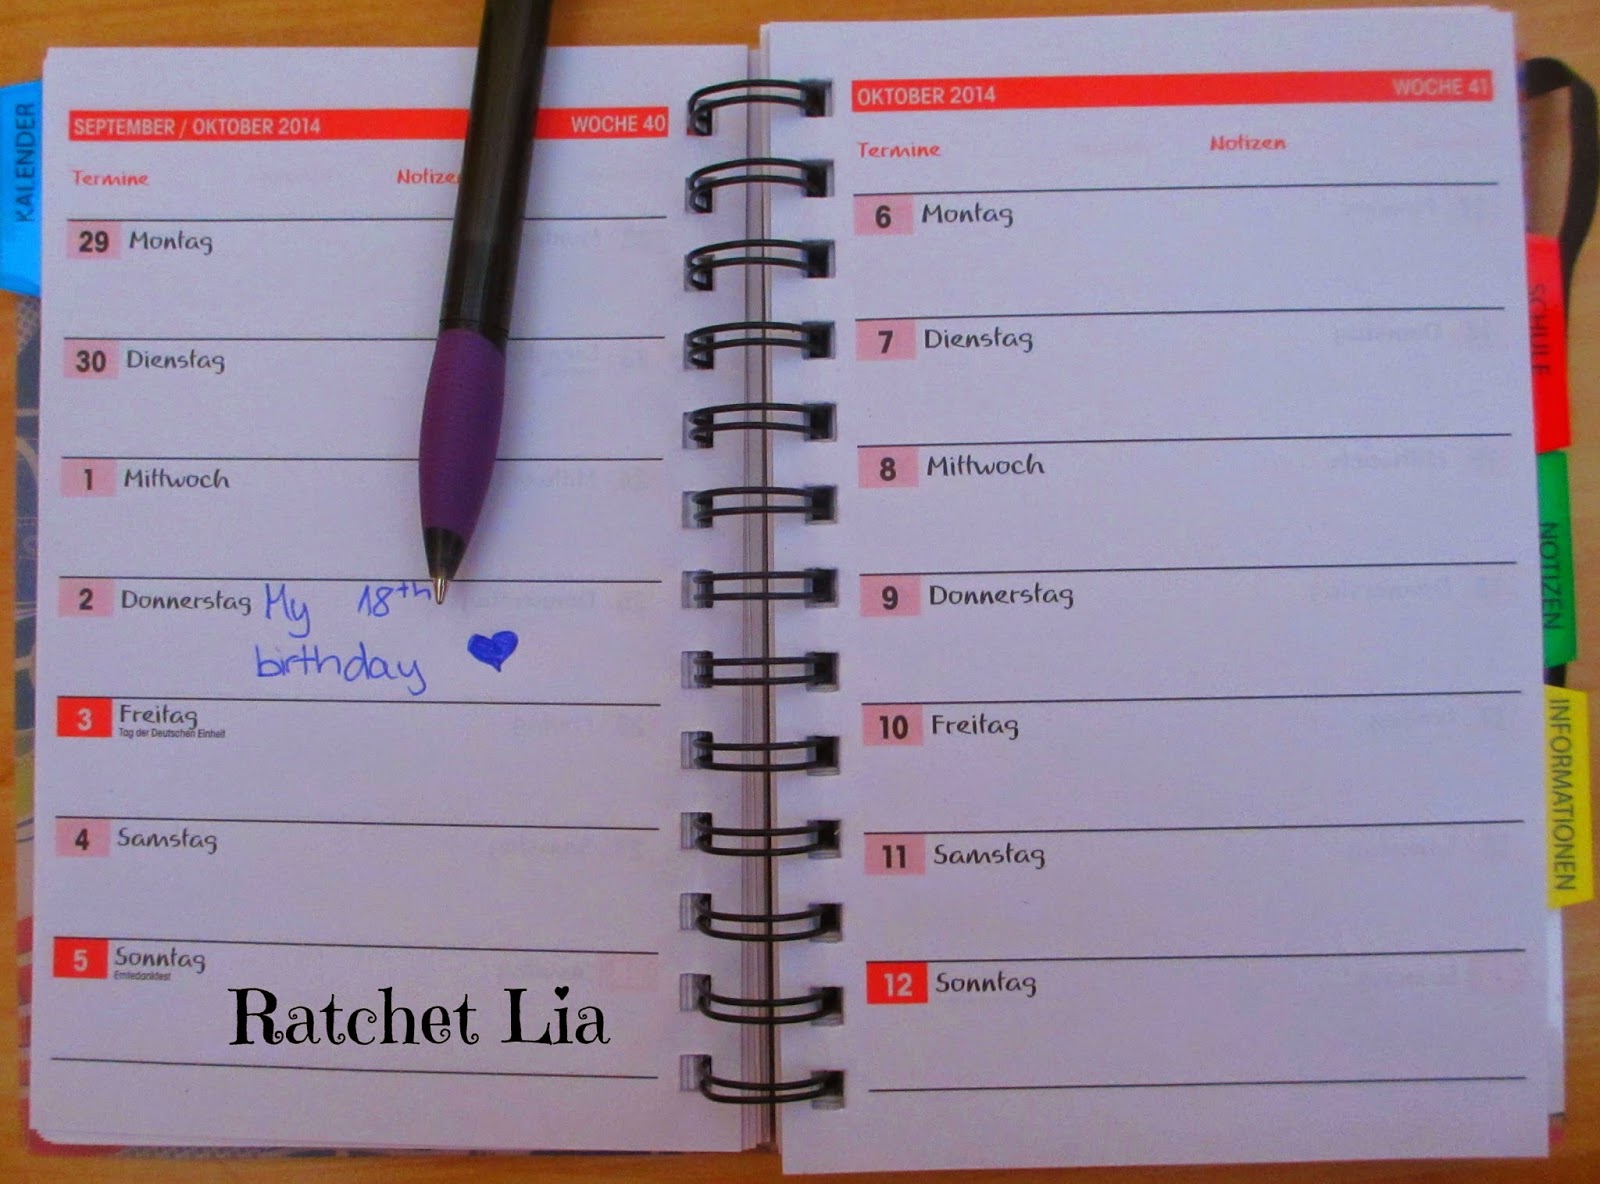 KALENDER
SEPTEMBER / OKTOBER 2014 WOCHE 40
Termine
29 Montag
30 Dienstag
1 Mittwoch
2 Donnerstag My 18th
birthday
3 Freitag
Tag der Deutschen Einheit
4 Samstag
5 Sonntag
Erntedankfest
Ratchet Lia
OKTOBER 2014 WOCHE 41
Termine Notizen
6 Montag
7 Dienstag
8 Mittwoch
9 Donnerstag
10 Freitag
11 Samstag
12 Sonntag
SCHULE
NOTIZEN
INFORMATIONEN